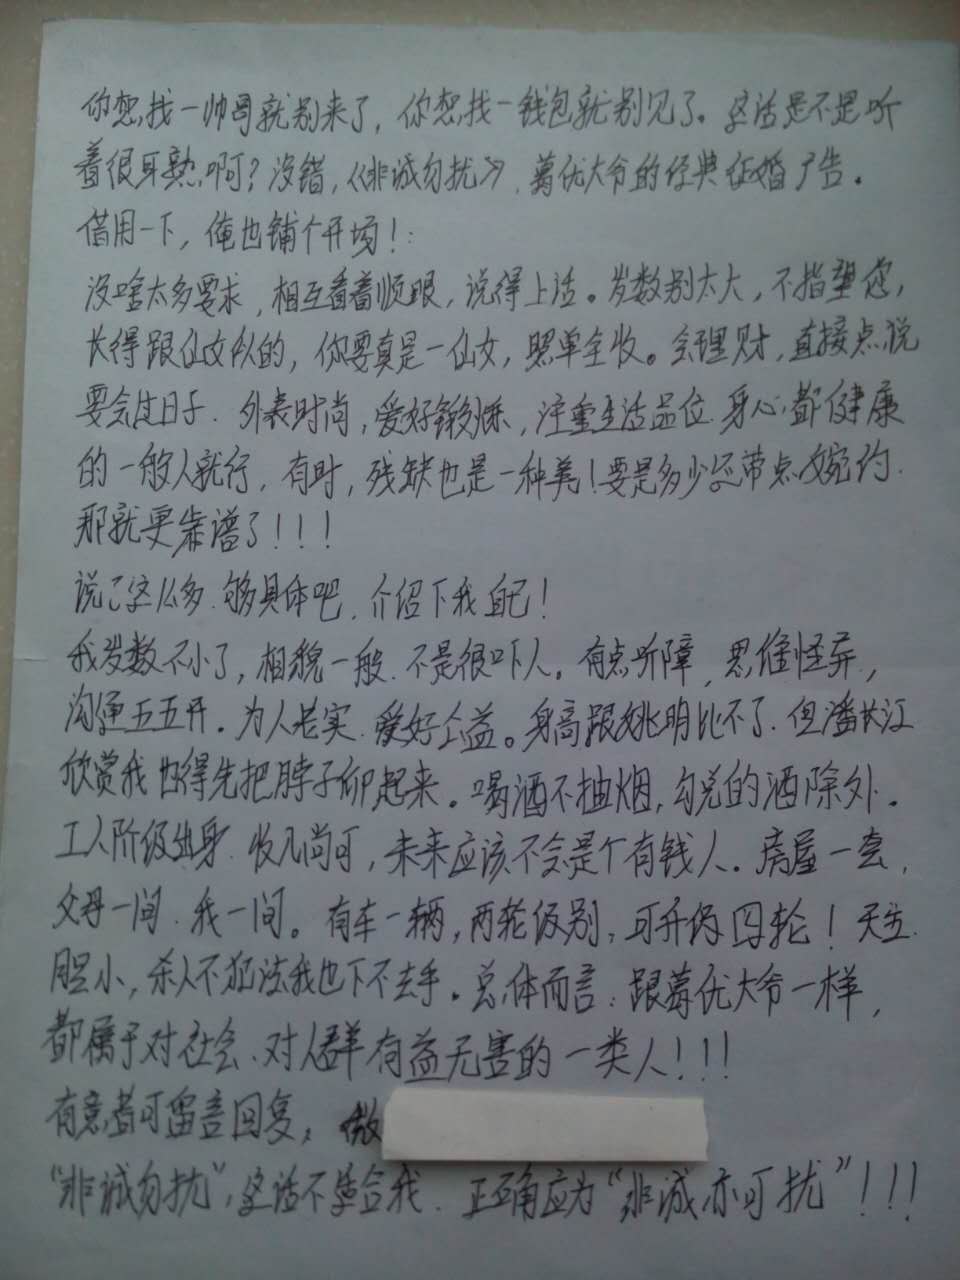 你想找一帅哥就别来了，你想找一钱包就别见了。这话是不是听
着很耳熟啊？没错，《非诚勿扰》，葛优大爷的经典征婚广告。
借用一下，俺也铺个开场！：
没啥太多要求，相互看着顺眼，说得上话。岁数别太大，不指望您，
长得跟仙女似的，你要真是一仙女，照单全收。会理财，直接点说
要会过日子．外表时尚，爱好锻炼，注重生活品位．身心都健康
的一般人就行，有时，残缺也是一种美！要是多少还带点婉约．
那就更靠谱了！！！
说了这么多．够具体吧．介绍下我自己！
我岁数不小了，相貌一般．不是很吓人。有点听障，思维怪异，
沟通五五开。为人老实．爱好公益。身高跟姚明比不了．但潘长江
欣赏我也得先把脖子仰起来。喝酒不抽烟，勾兑的酒除外．
工人阶级出身．收入尚可，未来应该不会是个有钱人。房屋一套，
父母一间．我一间。有车一辆，两轮级别，可升级四轮！天生
胆小，杀人不犯法我也下不去手。总体而言：跟葛优大爷一样，
都属于对社会、对人群有益无害的一类人！！！
有意者可留言回复，微
“非诚勿扰”，这话不适合我．正确应为“非诚亦可扰”！！！